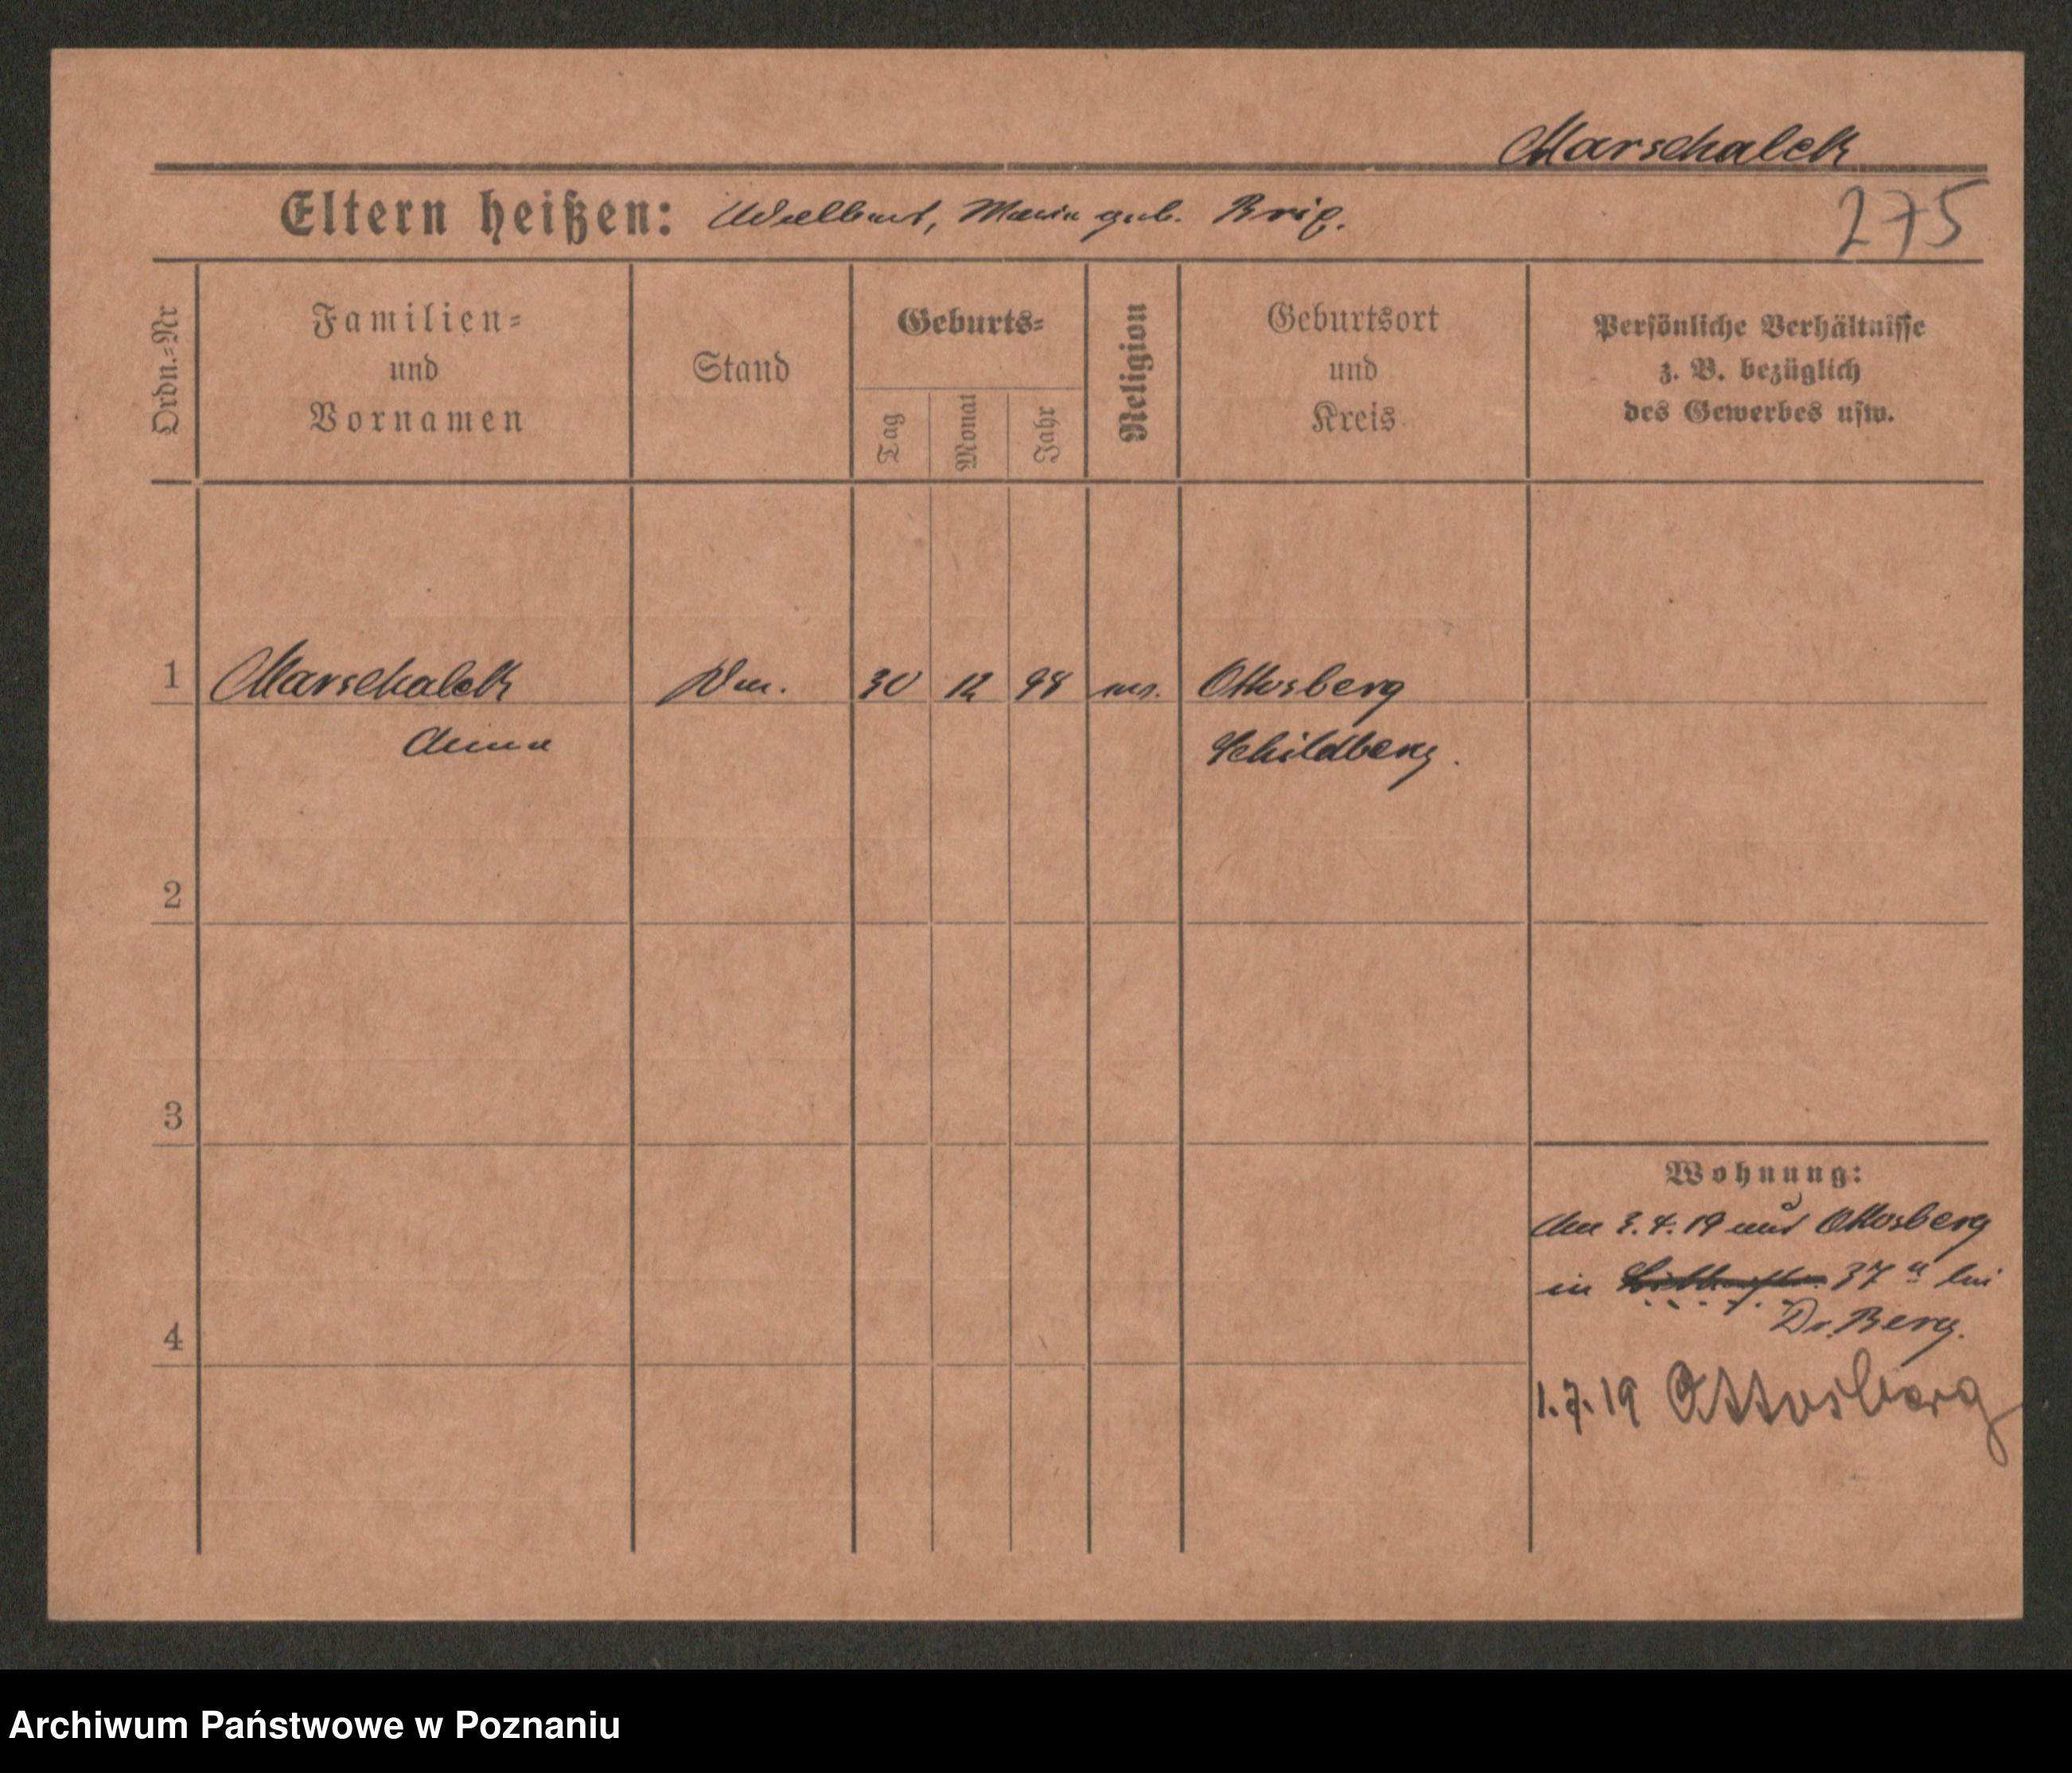 Marschalck
275
Eltern heißen: Maria geb.
Ordn.=Nr
Familien=
und
Vornamen
Stand
Geburts=
Tag
Monat
Jahr
Religion
Geburtsort
und
Kreis
Persönliche Verhältnisse
z. B. bezüglich
des Gewerbes usw.
1 Marschalck 30 12 98 Ottosberg
Anna Schildberg.
2
3
4
Wohnung:
3.4.19 aus Ottosberg
in 37 a bei
Dr. Berg.
1.7.19 Ottosberg
Archiwum Państwowe w Poznaniu